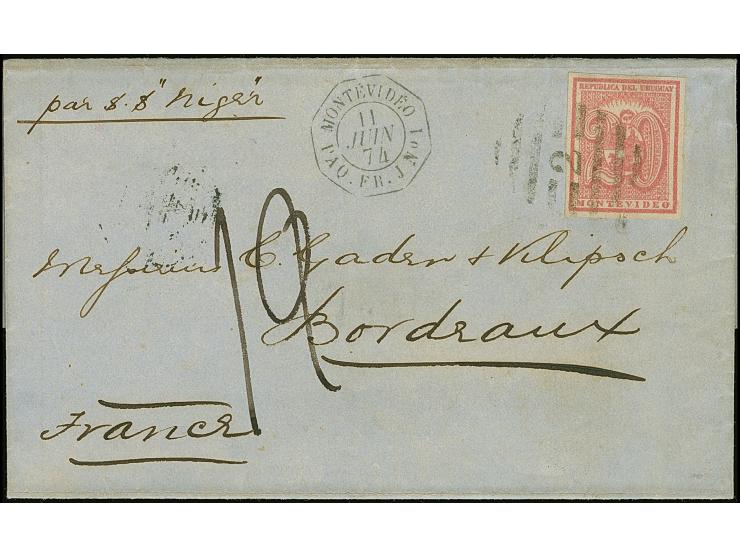 par S.S "Niger"
MONTÉVIDÉO
11
JUIN
74
PAQ. FR. J No 1
REPUBLICA DEL URUGUAY
20
MONTEVIDEO
19
Messieurs E. Gaden & Klipsch
Bordeaux
France